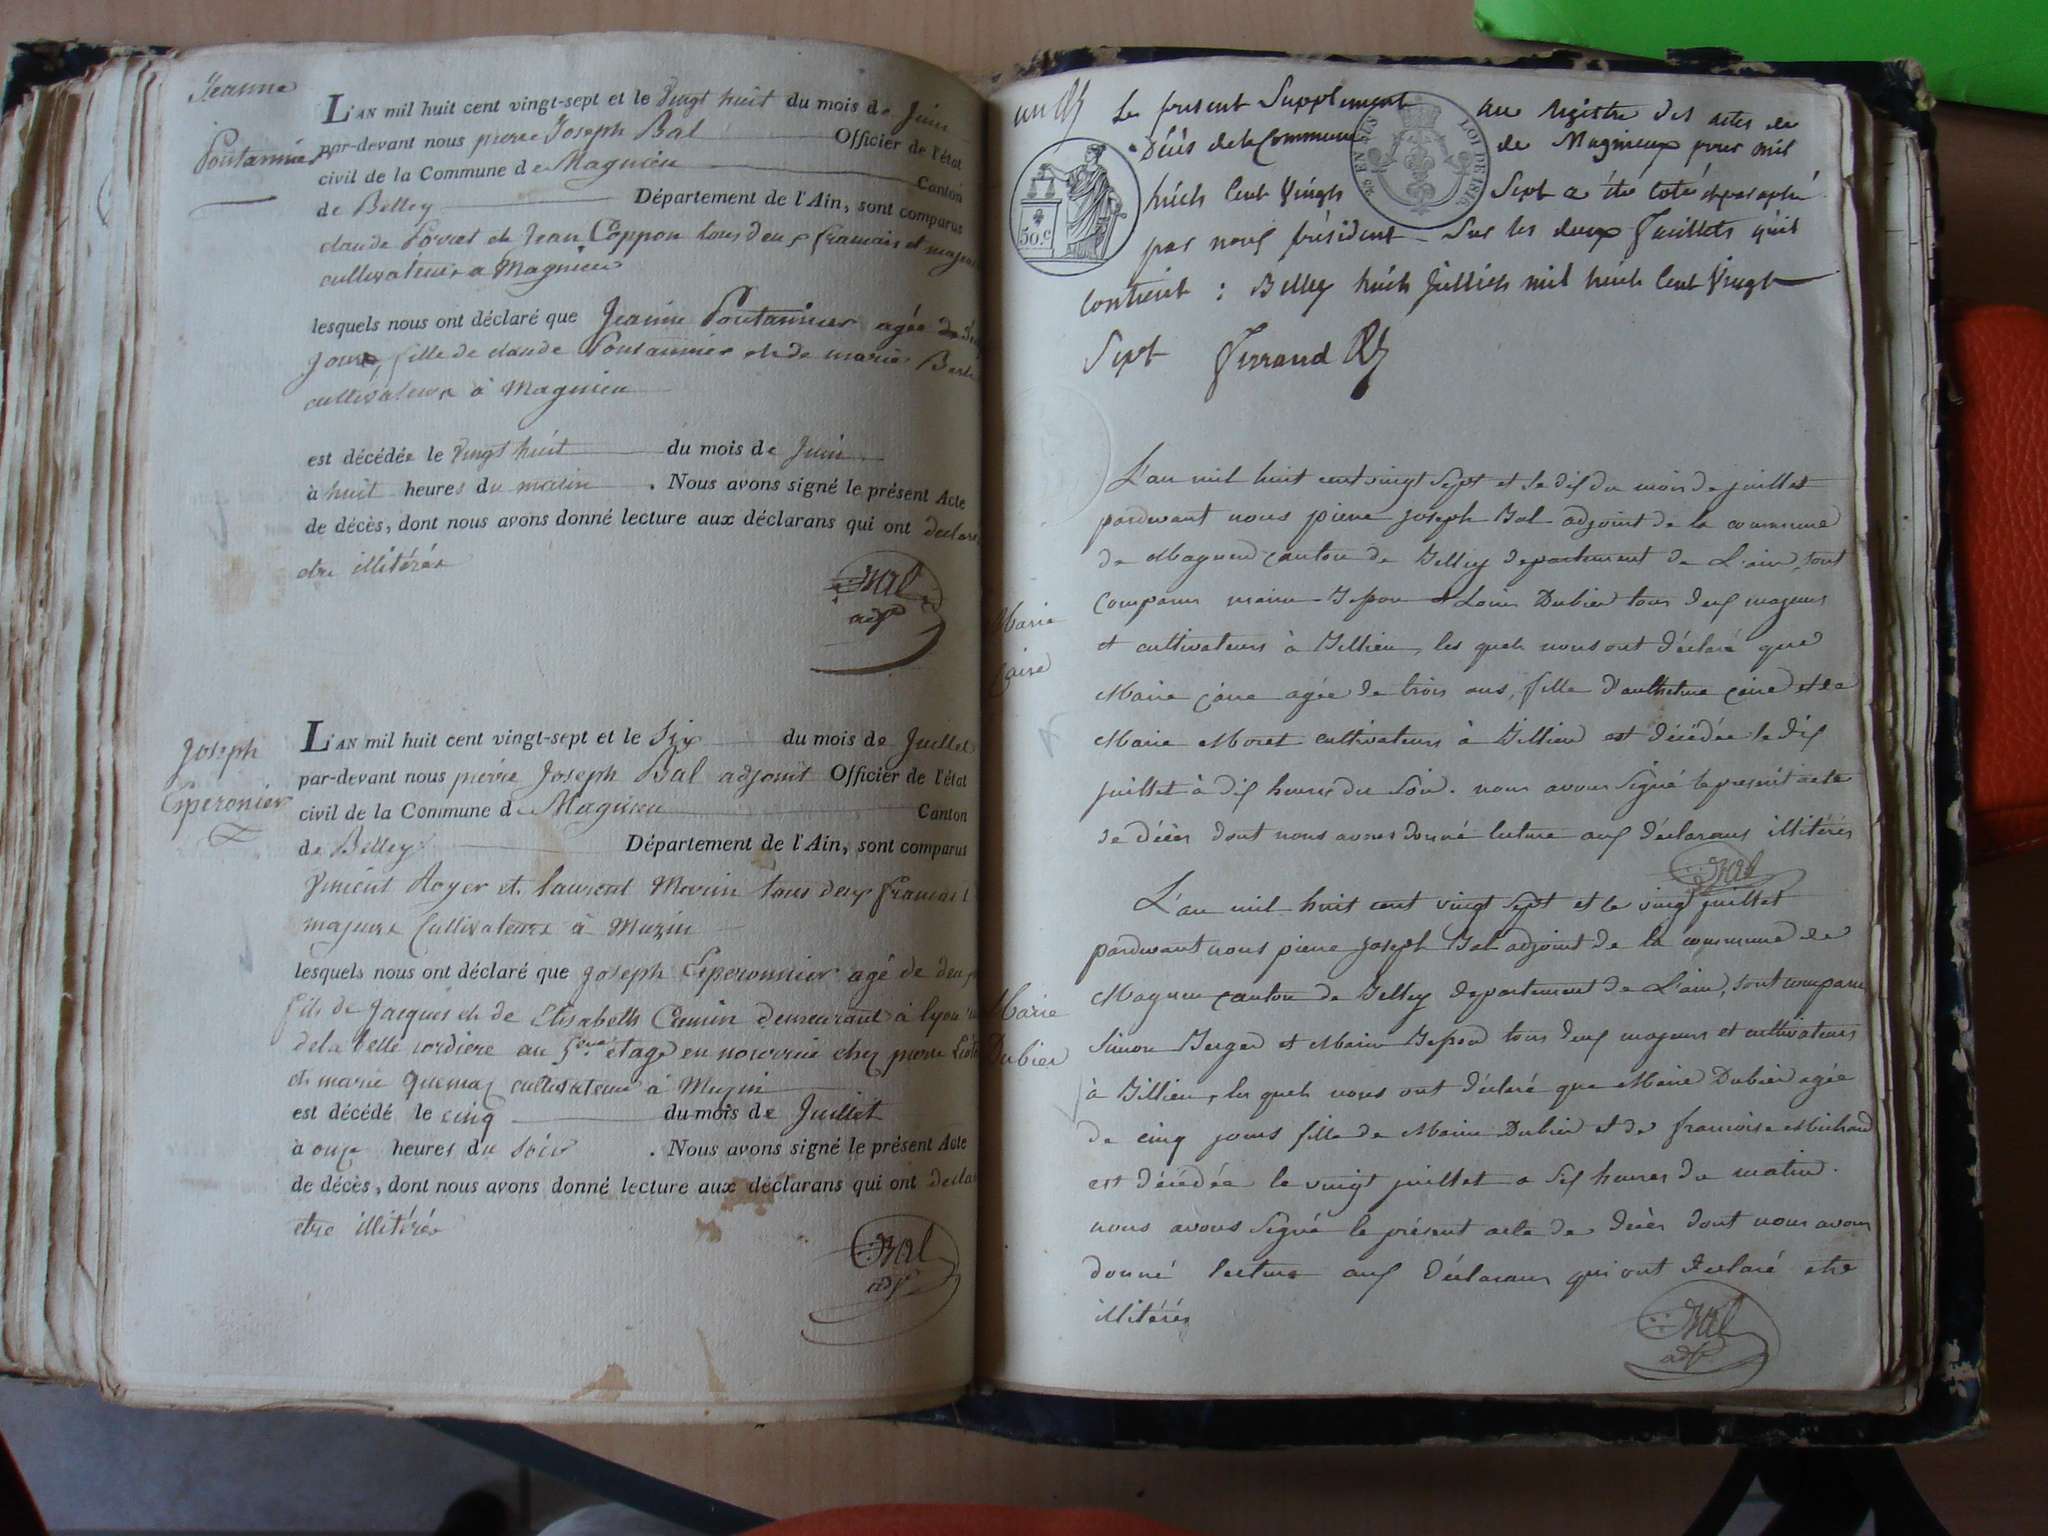 Jeanne
Pontannier
L'AN mil huit cent vingt-sept et le vingt huit du mois de Juin
par-devant nous pierre Joseph Bal Officier de l'état
civil de la Commune de Magnieu Canton
de Belley Département de l'Ain, sont comparus
claude et Jean Coppon tous deux francais et
cultivateurs a Magnieu
lesquels nous ont déclaré que Jeanne Pontannier agée de
jours, fille de claude Pontannier et de marie
cultivateurs à Magnieu
est décédée le vingt huit du mois de Juin
à huit heures du matin . Nous avons signé le présent Acte
de décès, dont nous avons donné lecture aux déclarans qui ont declaré
etre illitérés
Bal
adjt
Joseph
Esperonier
L'AN mil huit cent vingt-sept et le Six du mois de Juillet
par-devant nous pierre Joseph Bal adjoint Officier de l'état
civil de la Commune de Magnieu Canton
de Belley Département de l'Ain, sont comparus
Vincent Royer et laurent Morin tous deux francais
majeurs Cultivateurs à Muzin
lesquels nous ont déclaré que Joseph Esperonnier agé de deux
fils de Jacques et de Elisabeth demeurant à lyon
dela belle cordiere au 5eme étage en nourrice chez pierre
et marie cultivateurs à Muzin
est décédé le cinq du mois de Juillet
à onze heures du soir . Nous avons signé le présent Acte
de décès, dont nous avons donné lecture aux déclarans qui ont
etre illitérés
Bal
adjt
un
Le present Supplement au registre des actes de
Décès de la Commune de Magnieux pour mil
huit Cent Vingt Sept a été coté et paraphé
par nous président Sur les deux feuillets qu'il
contient : Belley huit Juillet mil huit Cent Vingt
Sept Ferrand
50.c
LOI DE 1816
L'an mil huit cent vingt sept et le dix du mois de juillet
pardevant nous pierre joseph Bal adjoint de la commune
de Magnieu canton de Belley departement de L'ain, sont
comparus Louis Dubier tous deux majeurs
et cultivateurs à Billieu, les quels nous ont déclaré que
Marie Caire agée de trois ans, fille d'anthelme Caire et de
Marie Moret cultivateurs à Billieu est décédée le dix
juillet à dix heures du soir. nous avons signé le present acte
de décès dont nous avons donné lecture aux déclarans illitérés
Bal
Marie
Caire
L'an mil huit cent vingt sept et le vingt juillet
pardevant nous pierre joseph Bal adjoint de la commune de
Magnieu canton de Belley departement de L'ain, sont comparus
Simon Berger et tous deux majeurs et cultivateurs
à Billieu, les quels nous ont déclaré que Marie Dubier agée
de cinq jours fille de Dubier et de francoise Michaud
est décédée le vingt juillet a six heures du matin.
nous avons signé le présent acte de décès dont nous avons
donné lecture aux déclarans qui ont declaré etre
illitérés
Bal
adjt
Marie
Dubier